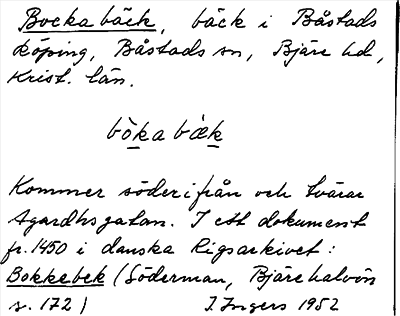 Bockabäck, bäck i Båstads
köping, Båstads sn, Bjäre hd,
Krist. län.
bò̱ka bæ̀ḵ
Kommer söderifrån och tvärar
Agardhsgatan. I ett dokument
fr. 1450 i danska Rigsarkivet:
Bokkebek (Söderman, Bjärehalvön
s. 172) I. Ingers 1952